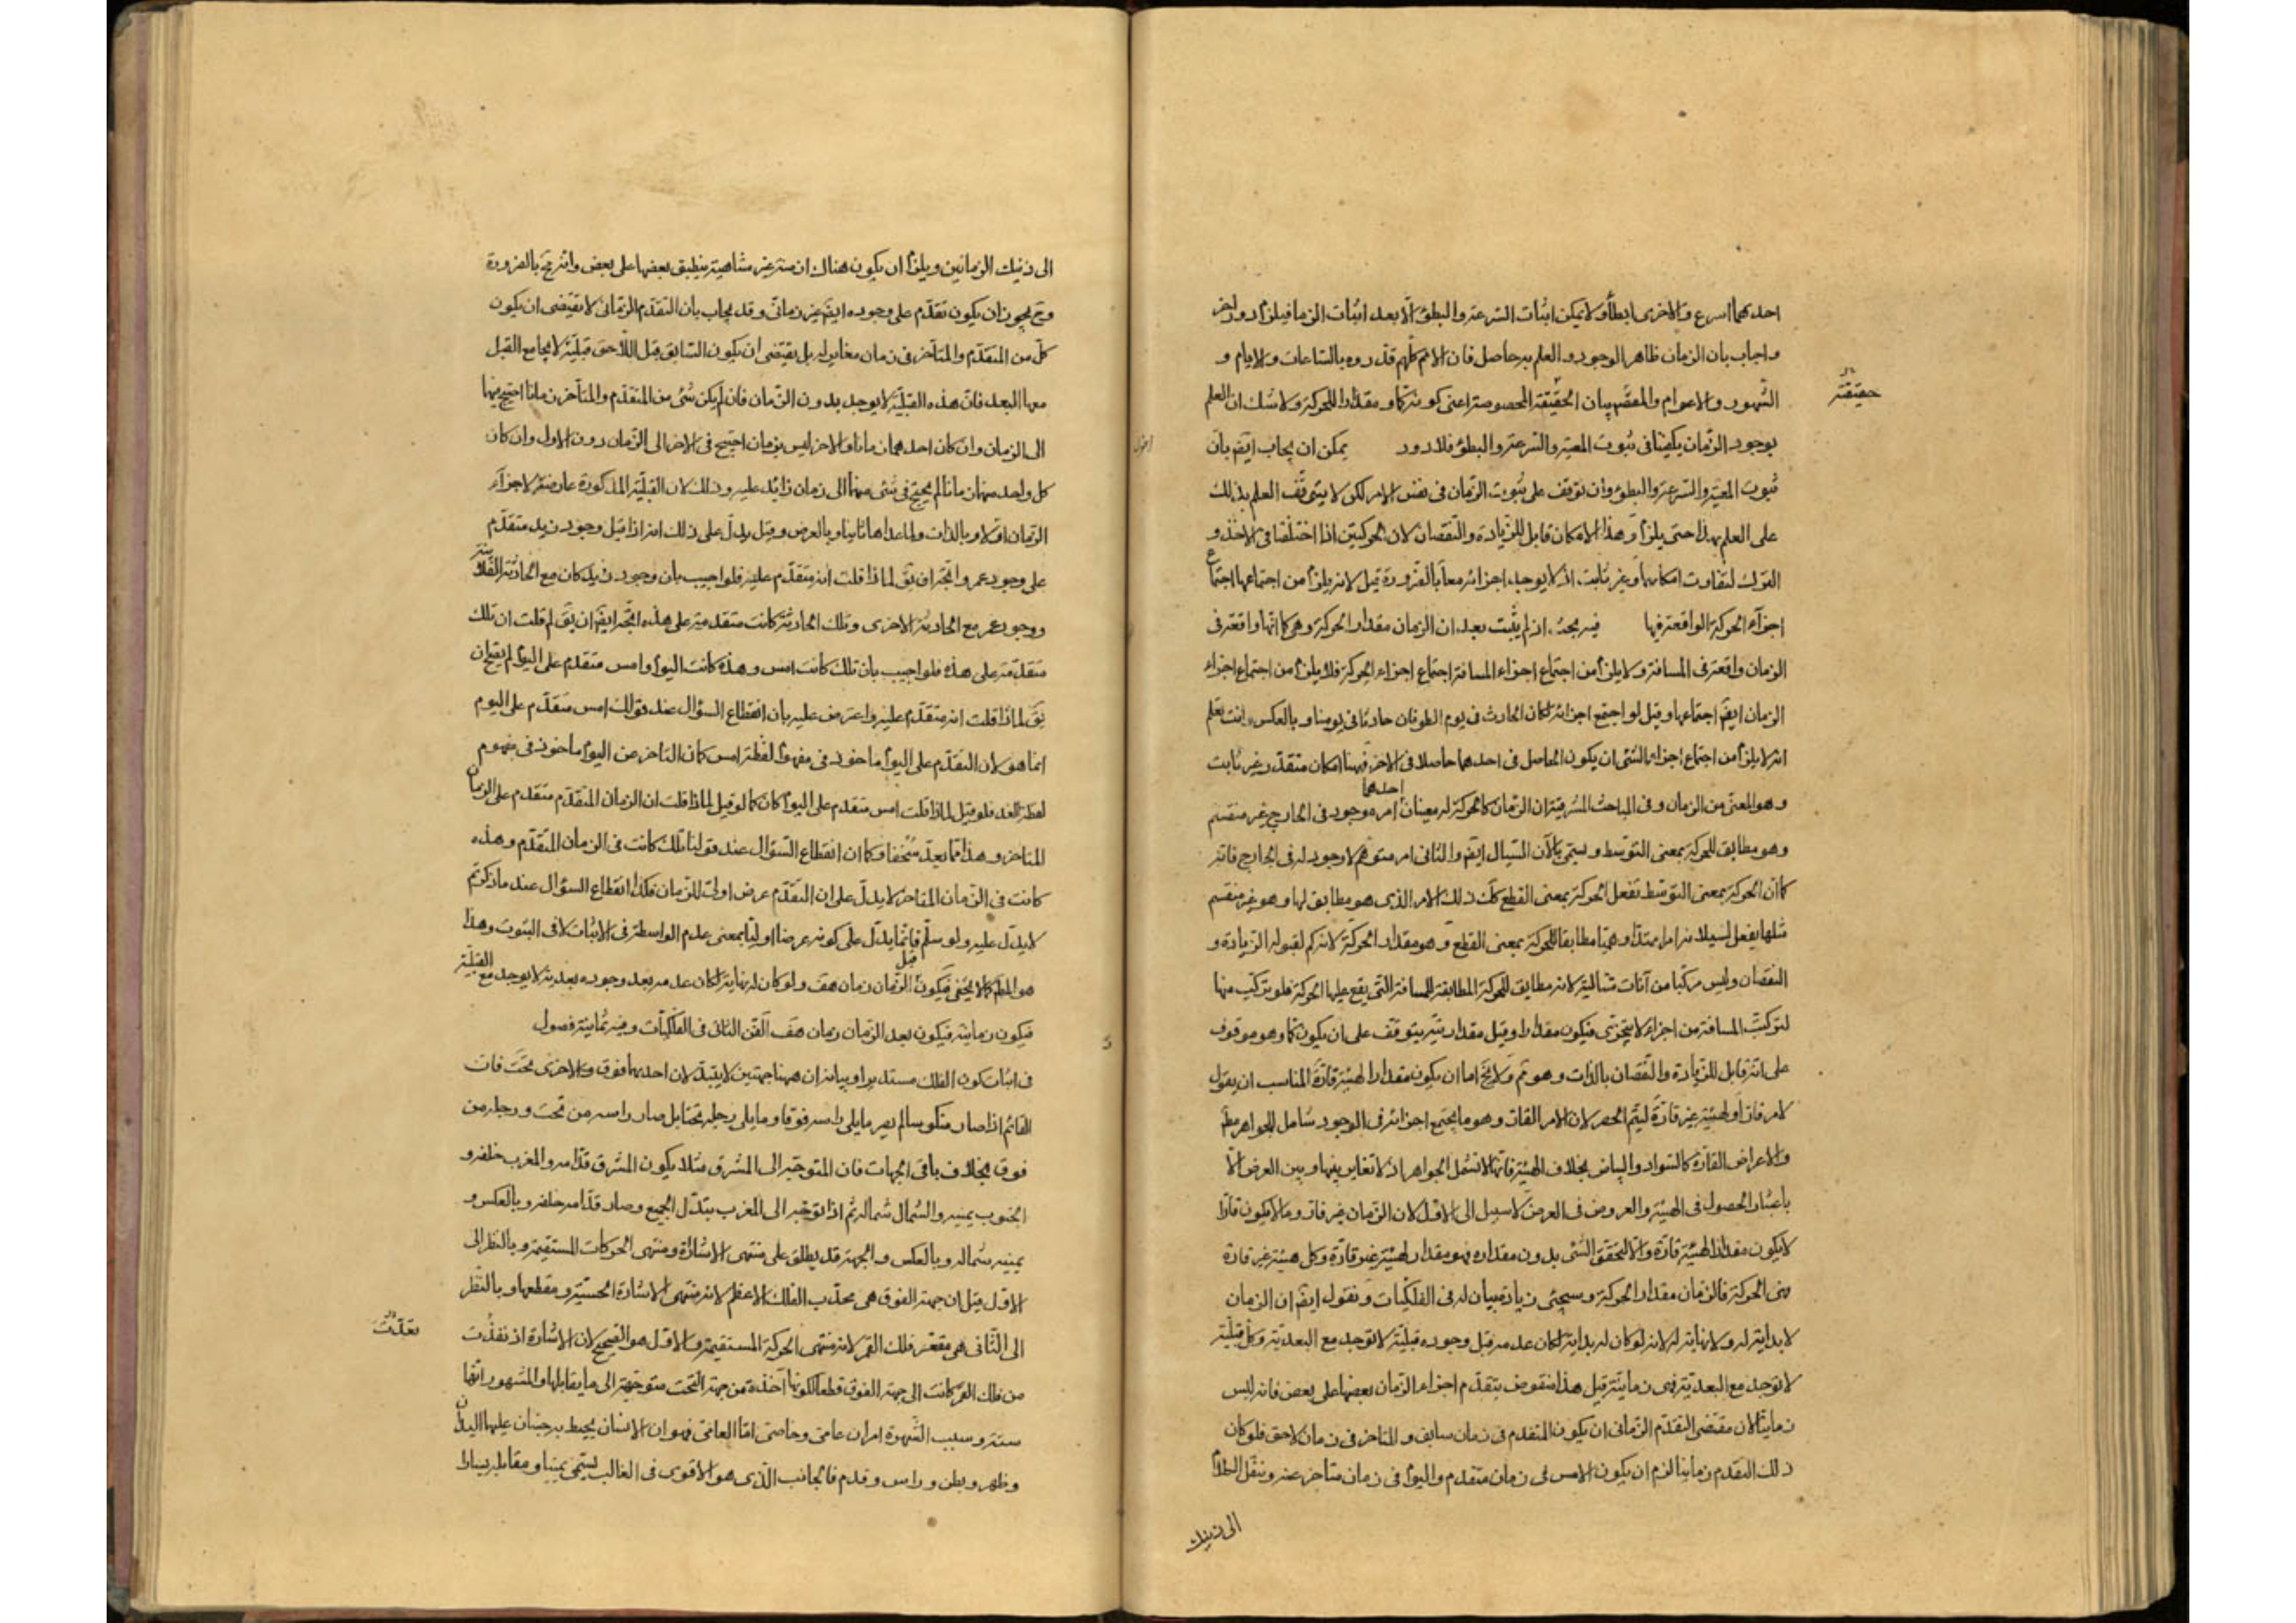 احدهما اسرع والاخرى ابطأ ولا يمكن اثبات السرعة والبطؤ الا بعد اثبات الزمان فيلزم الدور
واجاب بان الزمان ظاهر الوجود والعلم به حاصل فان الامم كلهم قدروه بالساعات والايام و
الشهور والاعوام والمقصود بيان الحقيقة المخصوصة اعنى كونه كما ومقدارا للحركة ولا شك ان العلم
حقيقته
بوجود الزمان يكفينا فى ثبوت المعية والسرعة والبطؤ فلا دور يمكن ان يجاب ايضَ بان
اقول
ثبوت المعية والسرعة والبطؤ وان توقف على ثبوت الزمان فى نفس الامر لكن لا يتوقف العلم بذلك
على العلم بهذا حتى يلزم وهذا الامكان قابل للزيادة والنقصان لان الحركتين اذا اختلفتا فى الاخذ و
الترك لتفاوت امكانهما وغير ثابت اذ لا يوجد اجزائه معا بالضرورة قيل لانه يلزم من اجتماعها اجتماع
اجزاء الحركة الواقعة فيها فيه بحث اذ لم يثبت بعد ان الزمان مقدار الحركة وهى كما انها واقعة فى
الزمان واقعة فى المسافة ولا يلزم من اجتماع اجزاء المسافة اجتماع اجزاء الحركة فلا يلزم من اجتماع اجزاء
الزمان ايضَ اجتماعها وقيل لو اجتمع اجزائه لكان الحادث فى يوم الطوفان حادثا فى يومنا وبالعكس وانت تعلم
انه لا يلزم من اجتماع اجزاء الشئ ان يكون الحاصل فى احدهما حاصلا فى الاخر فههنا امكان متقدر غير ثابت
وهو المعنى من الزمان وفى المباحث المشرقية ان الزمان كالحركة له معنيان احدهما امر موجود فى الخارج غير منقسم
وهو مطابق للحركة بمعنى التوسط ويسمى بالآن السيال ايضَ والثانى امر متوهم لا وجود له فى الخارج فانه
كما ان الحركة بمعنى التوسط تفعل الحركة بمعنى القطع كك ذلك الامر الذى هو مطابق لها وهو غير منقسم
مثلها يفعل بسيلانه امرا ممتدا وهميا مطابقا للحركة بمعنى القطع وهو مقدار الحركة لانه كم لقبوله الزيادة و
النقصان وليس مركبا من آنات متتالية لانه مطابق للحركة المطابقة للمسافة التى يقع عليها الحركة فلو تركب منها
لتركبت المسافة من اجزاء لا يتجزى فيكون مقدارا وقيل مقداريته يتوقف على ان يكون كما وهو موقوف
على انه قابل للزيادة والنقصان بالذات وهو مَم ولا يخَ اما ان يكون مقدار الهيئة قارة المناسب ان يقول
لامر قار او لهيئة غير قارة ليتم الحصر لان الامر القار وهو ما يجتمع اجزائه فى الوجود شامل للجواهر مط
والاعراض القارة كالسواد والبياض بخلاف الهيئة فانها لا تشمل الجواهر اذ لا تغاير بينها وبين العرض الا
باعتبار الحصول فى الهيئة والعروض فى العرض لا سبيل الى الاول لان الزمان غير قار وما لا يكون قارا
لا يكون مقدارا لهيئة قارة والا لتحقق الشئ بدون مقداره فهو مقدار لهيئة غير قارة وكل هيئة غير قارة
فهى الحركة فالزمان مقدار الحركة وسيجئ زيادة بيان له فى الفلكيات ونقول ايضَ ان الزمان
لا بداية له ولا نهاية له لانه لو كان له بداية لكان عدمه قبل وجوده قبلية لا توجد مع البعدية وكل قبلية
لا توجد مع البعدية فهى زمانية قيل هذا منقوض بتقدم اجزاء الزمان بعضها على بعض فانه ليس
زمانيا لان مقتضى التقدم الزمانى ان يكون المتقدم فى زمان سابق والمتاخر فى زمان لاحق فلو كان
ذلك التقدم زمانيا لزم ان يكون الامس فى زمان متقدم واليوم فى زمان متاخر عنه وننقل الكلام
الى ذينك
الى ذينك الزمانين ويلزم ان يكون هناك ازمنة غير متناهية ينطبق بعضها على بعض وانه مَح بالضرورة
وح يجوز ان يكون تقدم على وجوده ايضَ غير زمانى وقد يجاب بان التقدم الزمانى لا يقتضى ان يكون
كل من المتقدم والمتاخر فى زمان مغاير له بل يقتضى ان يكون السابق قبل اللاحق قبلية لا يجامع القبل
معها البعد فان هذه القبلية لا يوجد بدون الزمان فان لم يكن شئ من المتقدم والمتاخر زمانا احتيج فيهما
الى الزمان وان كان احدهما زمانا والاخر ليس بزمان احتيج فى الاخر الى الزمان دون الاول وان كان
كل واحد منهما زمانا لم يحتج فى شئ منهما الى زمان زائد عليه وذلك لان القبلية المذكورة عارضة لاجزاء
الزمان اولا وبالذات ولما عداها ثانيا وبالعرض وقيل يدل على ذلك انه اذا قيل وجود زيد متقدم
على وجود عمرو اتجه ان يقَ لماذا قلت انه متقدم عليه فلو اجيب بان وجود زيد كان مع الحادثة الفلانية
ووجود عمرو مع الحادثة الاخرى وتلك الحادثة كانت متقدمة على هذه اتجه ايضَ ان يقَ لم قلت ان تلك
متقدمة على هذه فلو اجيب بان تلك كانت امس وهذه كانت اليوم وامس متقدم على اليوم لم يصح ان
يقَ لماذا قلت انه متقدم عليه واعترض عليه بان انقطاع السؤال عند قولك امس متقدم على اليوم
انما هو لان التقدم على اليوم ماخوذ فى مفهوم لفظة امس كما ان التاخر عن اليوم ماخوذ فى مفهوم
لفظ الغد فلو قيل لماذا قلت امس متقدم على اليوم كان كما لو قيل لماذا قلت ان الزمان المتقدم متقدم على الزمان
المتاخر وهذا مما يعد سخفا وكما ان انقطاع السؤال عند قولنا تلك كانت فى الزمان المتقدم وهذه
كانت فى الزمان المتاخر لا يدل على ان التقدم عرض اولى للزمان فكذا انقطاع السؤال عند ما ذكرتم
لا يدل عليه ولو سلم فانما يدل على كونه عرضا اوليا بمعنى عدم الواسطة فى الاثبات لا فى الثبوت وهذا
هو المط كما لا يخفى فيكون قبل الزمان زمان هف ولو كان له نهاية لكان عدمه بعد وجوده بعدية لا يوجد مع القبلية
فيكون زمانية فيكون بعد الزمان زمان هف الفن الثانى فى الفلكيات وفيه ثمانية فصول
فى اثبات كون الفلك مستديرا وبيانه ان ههنا جهتين لا يتبدلان احدهما فوق والاخرى تحت فان
القائم اذا صار منكوسا لم يصر ما يلى راسه فوقا وما يلى رجله تحتا بل صار راسه من تحت ورجله من
فوق بخلاف باقى الجهات فان المتوجه الى المشرق مثلا يكون المشرق قدامه والمغرب خلفه و
الجنوب يمينه والشمال شماله ثم اذا توجه الى المغرب يتبدل الجميع وصار قدامه خلفه وبالعكس و
يمينه شماله وبالعكس والجهة قد يطلق على منتهى الاشارة ومنتهى الحركات المستقيمة وبالنظر الى
الاول قيل ان جهة الفوق هى محدب الفلك الاعظم لانه منتهى الاشارة الحسية ومقطعها وبالنظر
الى الثانى هى مقعر فلك القمر لانه منتهى الحركة المستقيمة والاول هو الصحيح لان الاشارة اذ نفذت
من فلك القمر كانت الى جهة الفوق قطعا لكونها آخذة من جهة التحت متوجهة الى ما يقابلها والمشهور انها
ستة وسبب الشهرة امران عامى وخاصى اما العامى فهو ان الانسان يحيط به جنبان عليهما اليدان
وظهر وبطن وراس وقدم فالجانب الذى هو الاقوى فى الغالب يسمى يمينا ومقابله يسارا